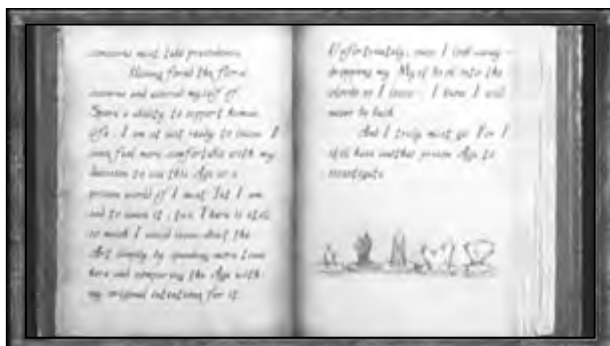 concerns must take precedence.
Having found the flora
diverse and assured myself of
Spire's ability to support human
life, I am at last ready to leave. I
now feel more comfortable with my
decision to use this Age as a
prison world if I must. Yet I am
sad to leave it, too. There is still
so much I could learn about the
Art simply by spending more time
here and comparing the Age with
my original intentions for it.
Unfortunately, once I link away—
dropping my Myst book into the
clouds as I leave— I know I will
never be back.
And I truly must go. For I
still have another prison Age to
investigate.